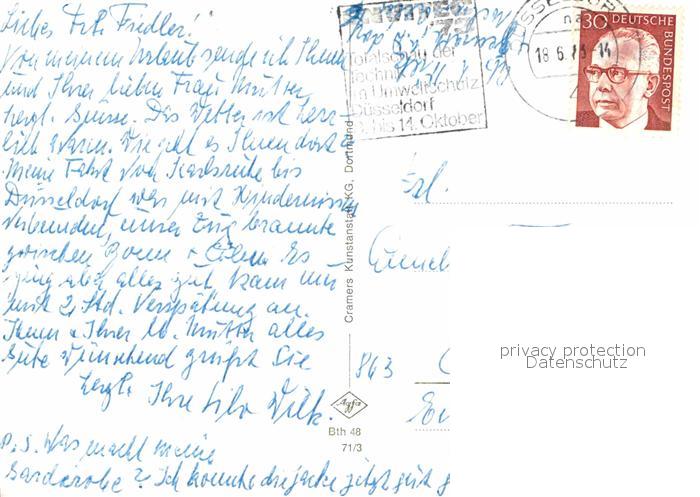 Liebes Frl. Fiedler!
Von meinem Urlaub sende ich Ihnen
und Ihrer lieben Frau Mutter
herzl. Grüsse. Das Wetter ist herr-
lich warm. Wie geht es Ihnen dort
Meine Fahrt von Karlsruhe bis
Düsseldorf war mit Hindernissen
verbunden, unser Zug brannte
zwischen Bonn + Cöln. Es
ging aber alles gut kam nur
mit 2 Std. Verspätung an.
Ihnen + Ihrer lb. Mutter alles
Gute wünschend grüßt Sie
herzl. Ihre
P.S. Was macht meine
Garderobe? Ich könnte die Jacke jetzt gut
der
Technik
Umweltschutz
Düsseldorf
bis 14. Oktober
18.6.73-14
30 DEUTSCHE
BUNDESPOST
Cramers Kunstanstalt KG, Dortmund
Frl.
863
privacy protection
Datenschutz
Agfa
Bth 48
71/3